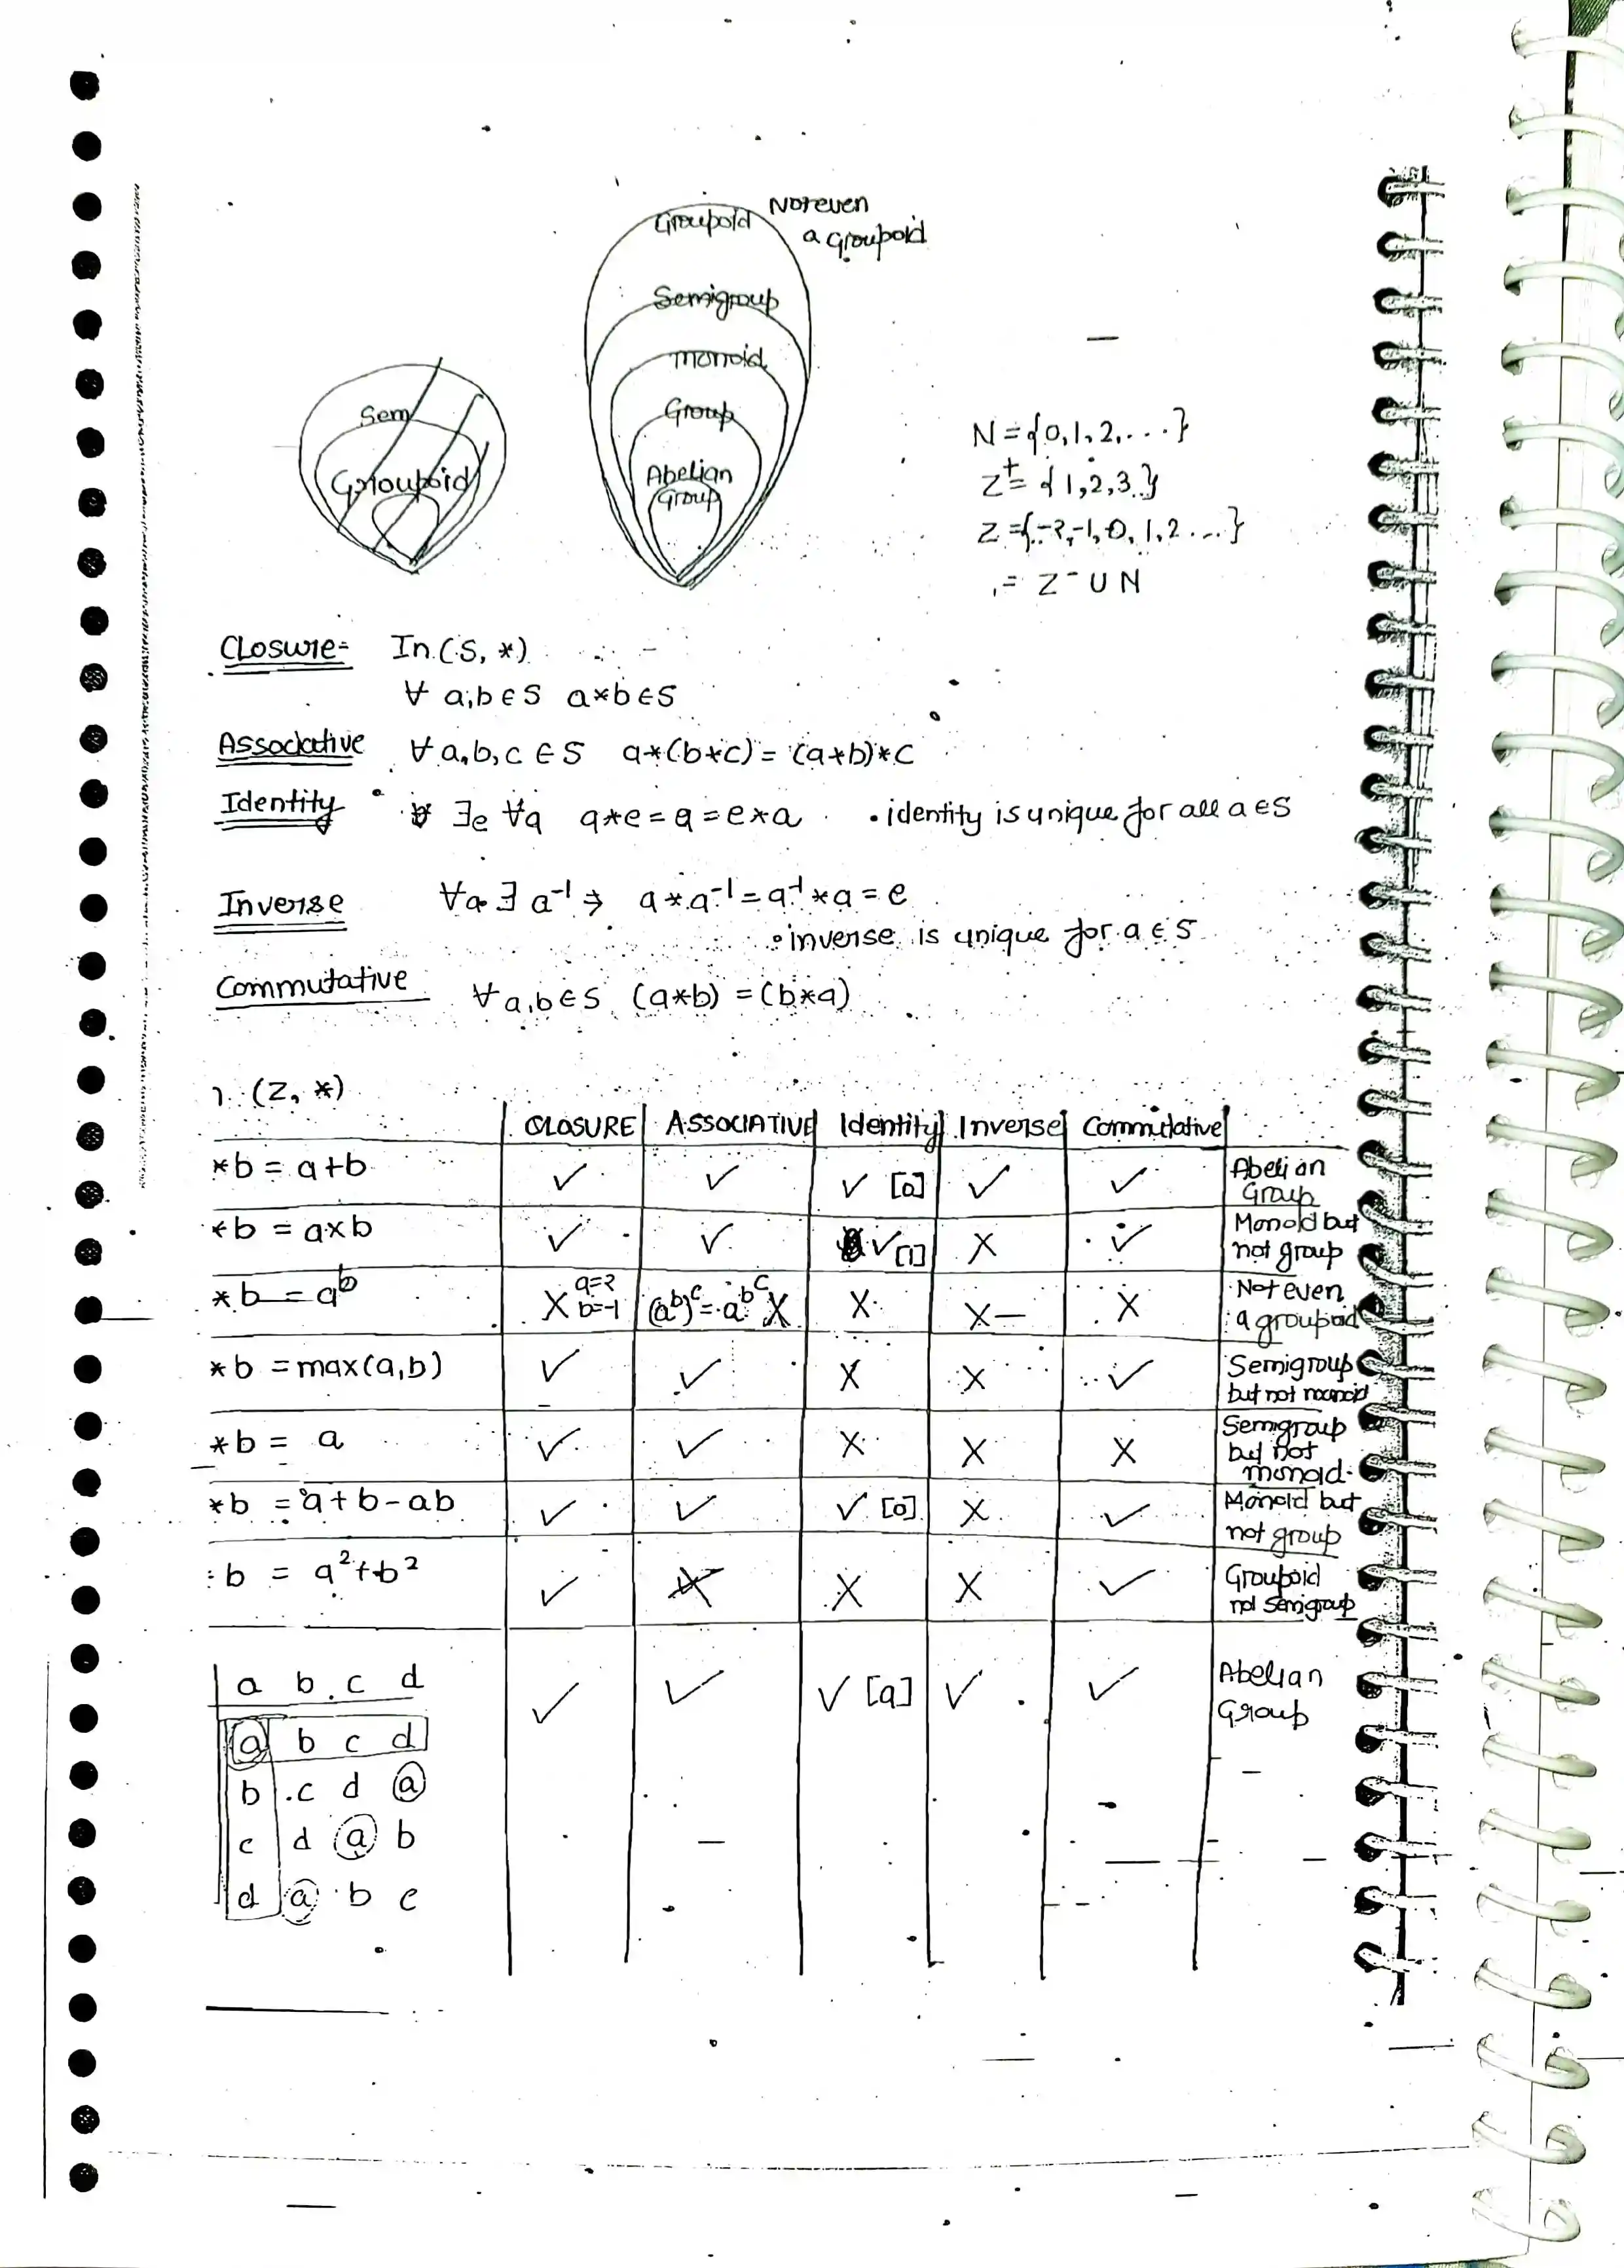 Groupoid Not even
a groupoid
Semigroup
monoid
Group
Abelian
Group
Sem
Groupoid
N = {0, 1, 2, ...}
Z⁺ = {1, 2, 3..}
Z = {..-2, -1, 0, 1, 2 ...}
= Z⁻ ∪ N
Closure- In (S, *)
∀ a, b ∈ S a*b ∈ S
Associative ∀ a, b, c ∈ S a*(b*c) = (a*b)*c
Identity ∃e ∀a a*e = a = e*a • identity is unique for all a ∈ S
Inverse ∀a ∃ a⁻¹ ⇒ a*a⁻¹ = a⁻¹*a = e
• inverse is unique for a ∈ S
Commutative ∀ a, b ∈ S (a*b) = (b*a)
1. (Z, *)
CLOSURE ASSOCIATIVE Identity Inverse Commutative
*b = a+b ✓ ✓ ✓ [0] ✓ ✓ Abelian Group
*b = a×b ✓ ✓ ✓ [1] X ✓ Monoid but not group
*b = a^b X a=2 b=-1 (a^b)^c = a^b^c X X X– X Not even a groupoid
*b = max(a,b) ✓ ✓ X X ✓ Semigroup but not monoid
*b = a ✓ ✓ X X X Semigroup but not monoid.
*b = a+b-ab ✓ ✓ ✓ [0] X ✓ Monoid but not group
b = a²+b² ✓ X X X ✓ Groupoid not semigroup
a b c d ✓ ✓ ✓ [a] ✓ ✓ Abelian Group
a b c d
b c d a
c d a b
d a b c